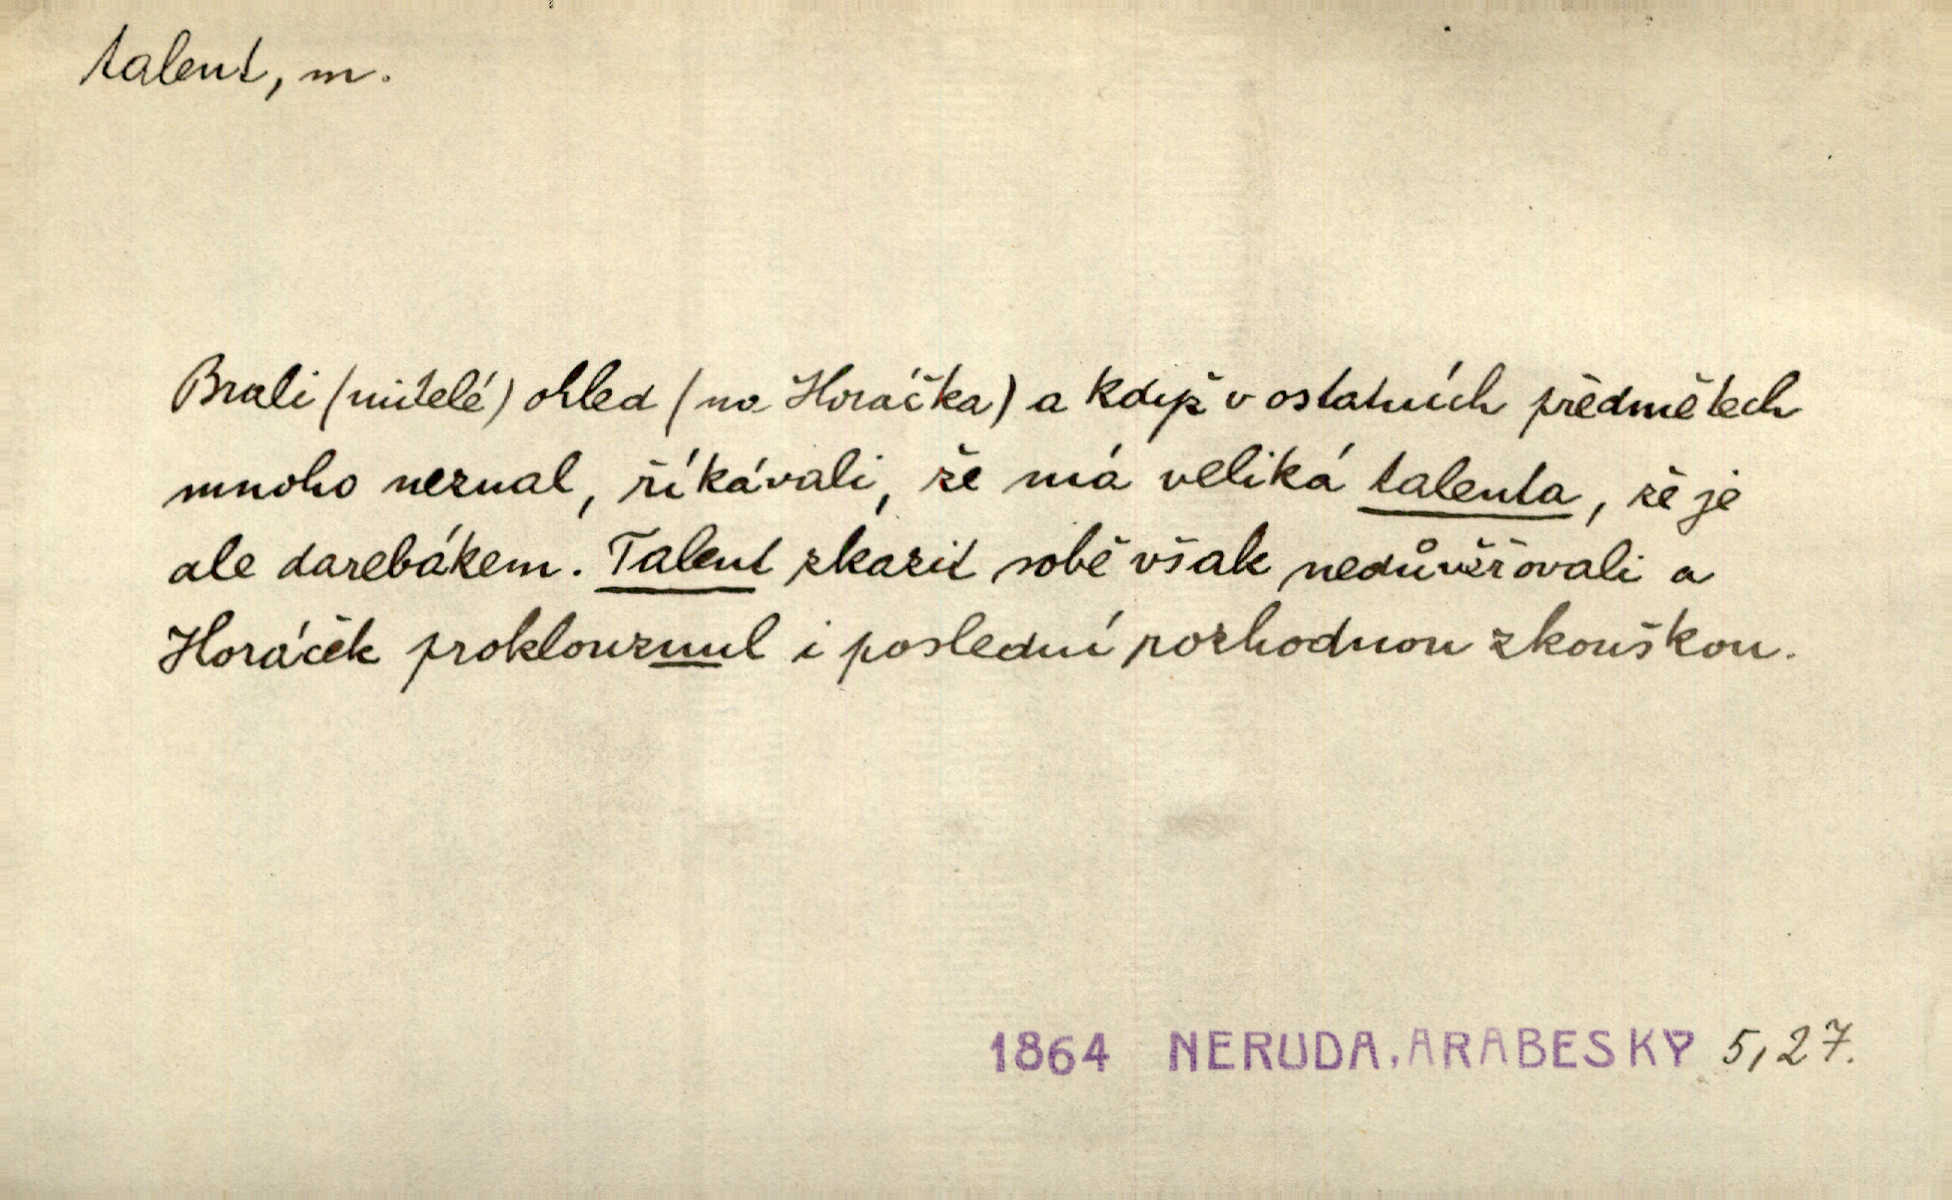 talent, m.
Brali (učitelé) ohled (na Horáčka) a když v ostatních předmětech
mnoho neznal, říkávali, že má veliká talenta, že je
ale darebákem. Talent zkazit sobě však nedůvěřovali a
Horáček proklouznul i poslední rozhodnou zkouškou.
1864 NERUDA, ARABESKY 5,27.